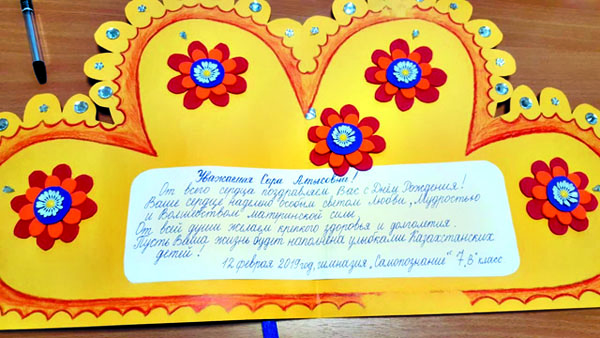 Уважаемая Сара Алпысовна!
От всего сердца поздравляем Вас с Днём Рождения!
Ваше сердце наделено особым светом Любви, Мудростью
и Волшебством материнской силы.
От всей души желаем крепкого здоровья и долголетия.
Пусть Ваша жизнь будет наполнена улыбками Казахстанских
детей!
12 февраля 2019 год, гимназия „Самопознание" 7 „В" класс.